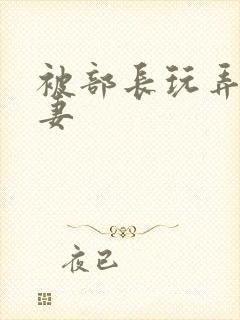 被部長玩弄
妻
夜已